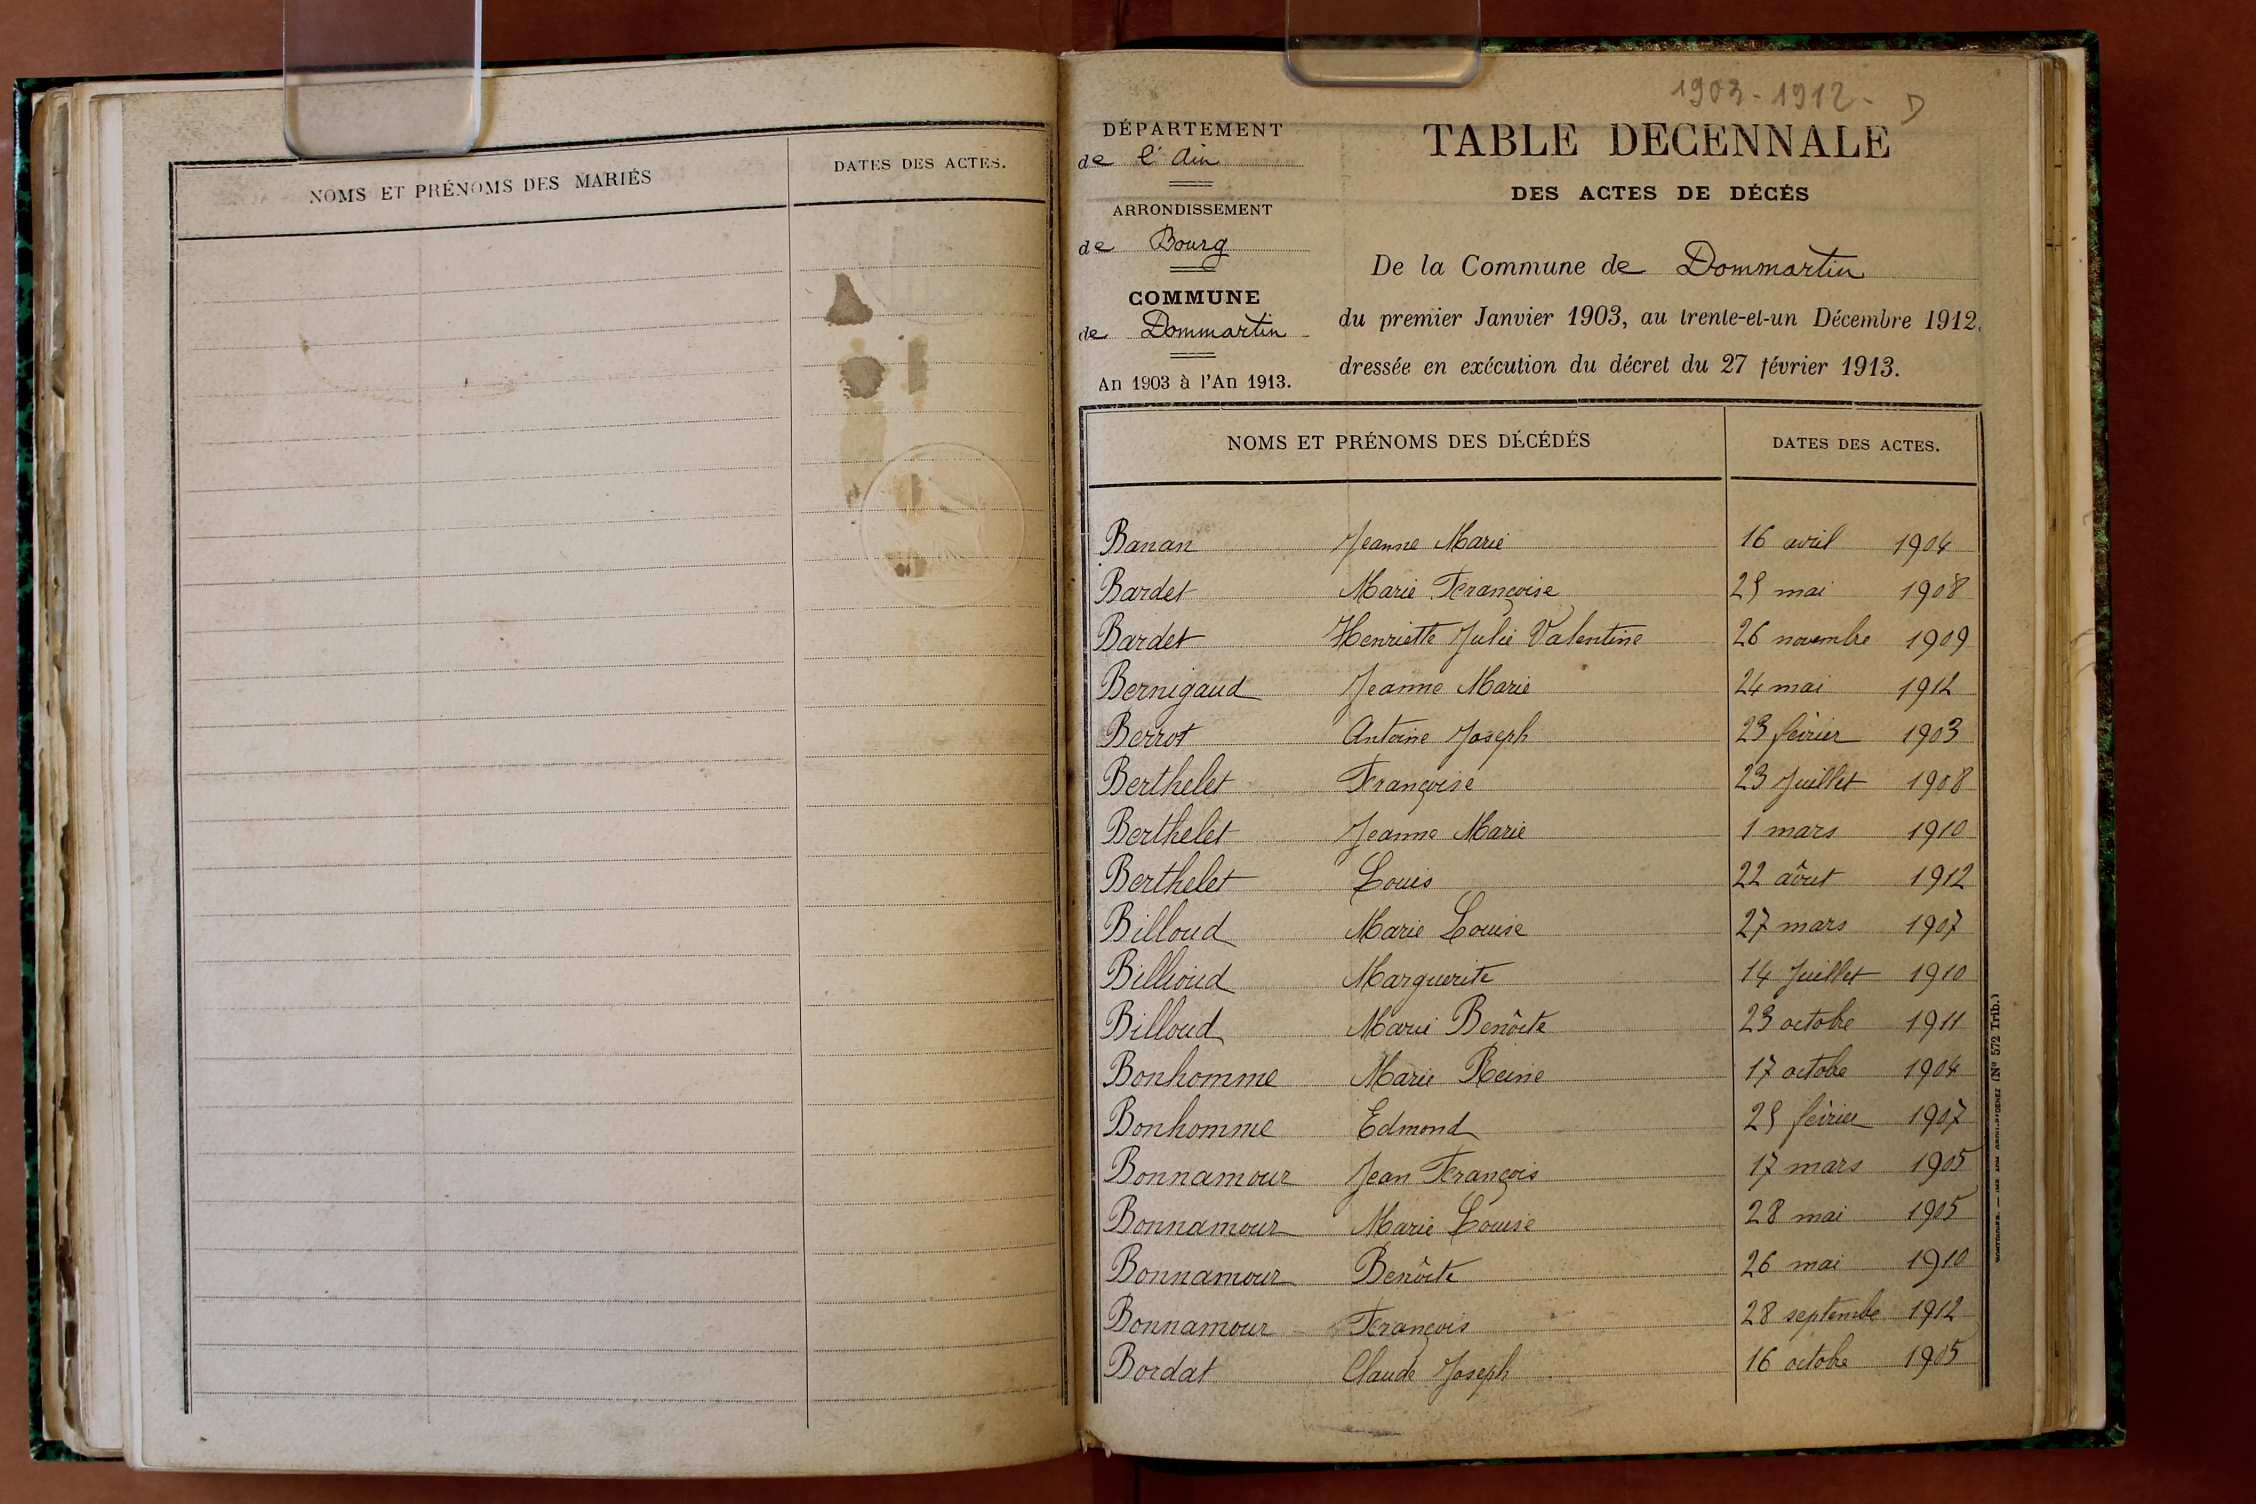 NOMS ET PRÉNOMS DES MARIÉS
DATES DES ACTES.
1903-1912- D
DÉPARTEMENT
de l'Ain
ARRONDISSEMENT
de Bourg
COMMUNE
de Dommartin
An 1903 à l'An 1913.
TABLE DECENNALE
DES ACTES DE DÉCÉS
De la Commune de Dommartin
du premier Janvier 1903, au trente-et-un Décembre 1912,
dressée en exécution du décret du 27 février 1913.
NOMS ET PRÉNOMS DES DÉCÉDÉS DATES DES ACTES.
Banan Jeanne Marie 16 avril 1904
Bardet Marie Françoise 25 mai 1908
Bardet Henriette Julie Valentine 26 novembre 1909
Bernigaud Jeanne Marie 24 mai 1912
Berrot Antoine Joseph 23 février 1903
Berthelet Françoise 23 Juillet 1908
Berthelet Jeanne Marie 1 mars 1910
Berthelet Louis 22 aôut 1912
Billoud Marie Louise 27 mars 1907
Billioud Marguerite 14 Juillet 1910
Billoud Marie Benôite 23 octobre 1911
Bonhomme Marie Reine 17 octobre 1904
Bonhomme Edmond 25 février 1907
Bonnamour Jean François 17 mars 1905
Bonnamour Marie Louise 28 mai 1905
Bonnamour Benôite 26 mai 1910
Bonnamour François 28 septembre 1912
Bordat Claude Joseph 16 octobre 1905
(Nº 572 Trib.)